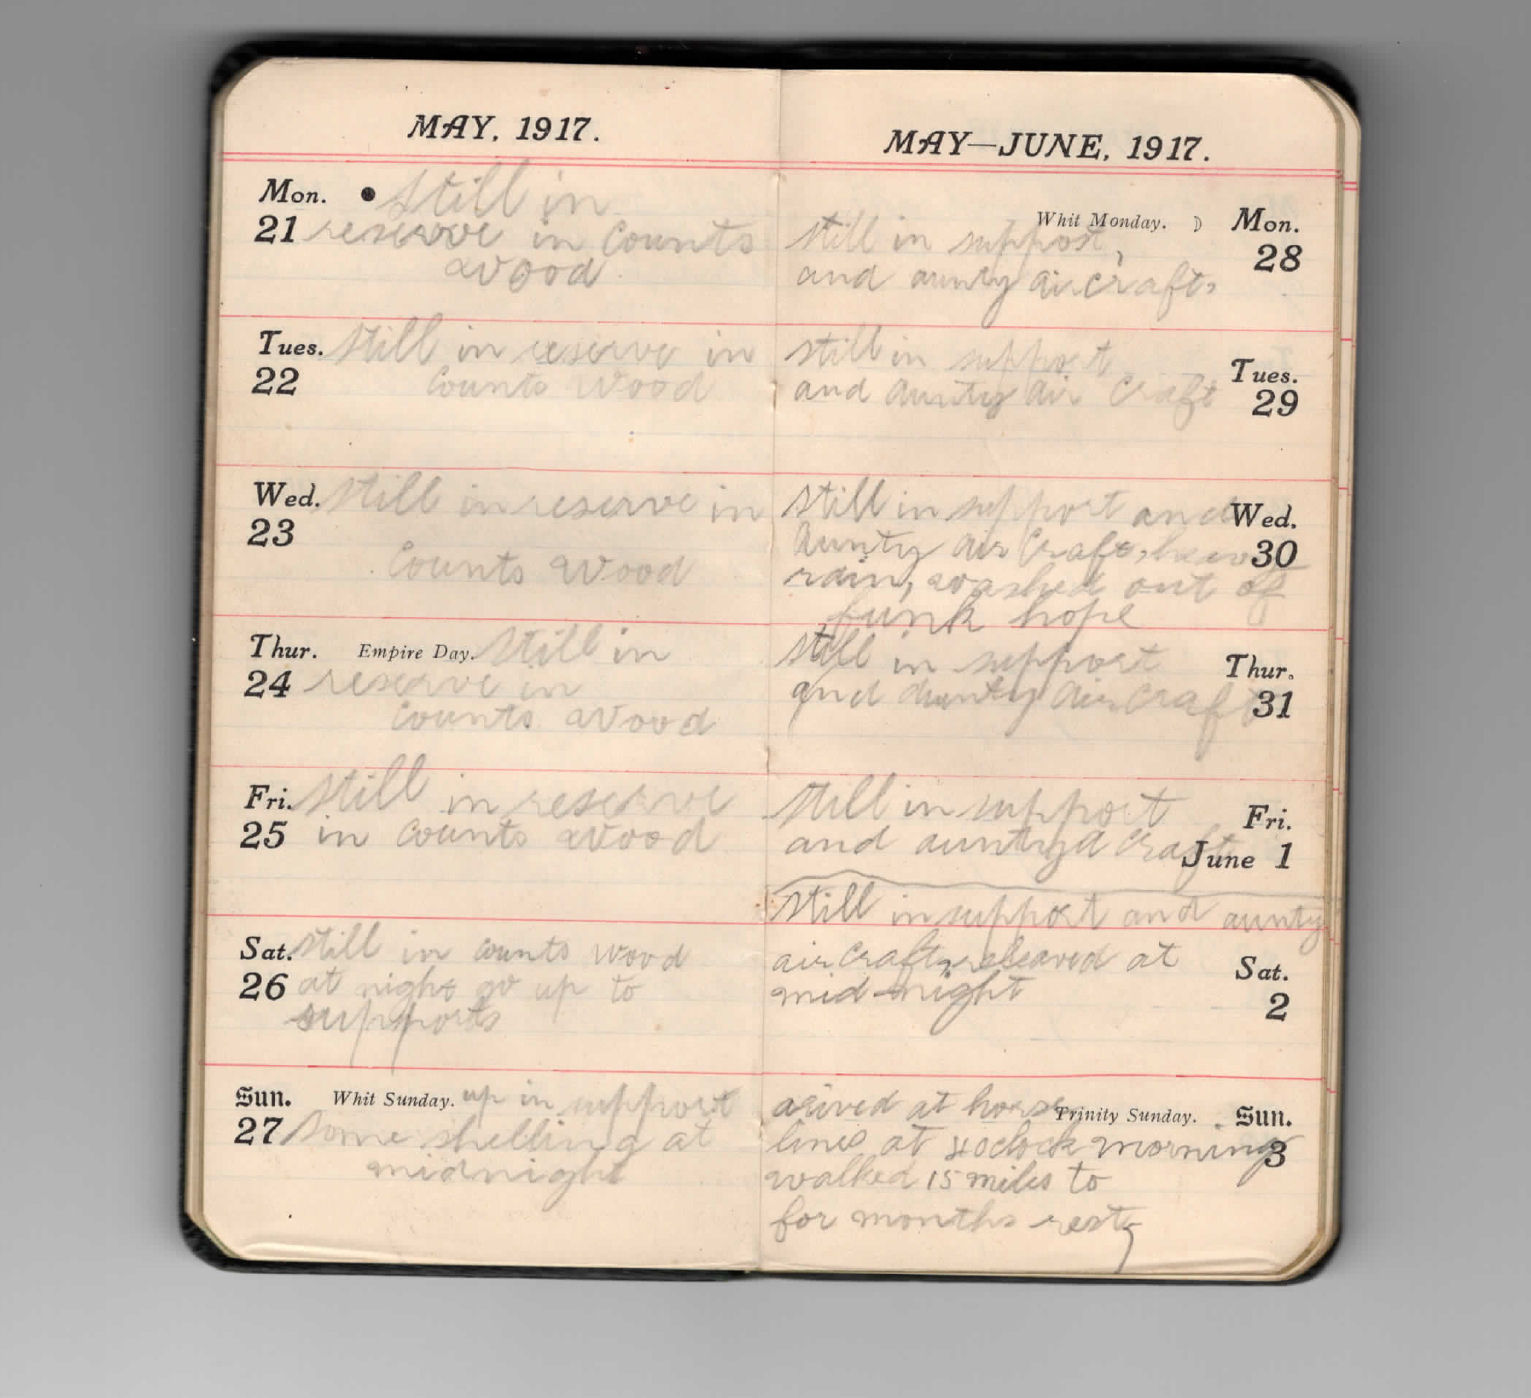 MAY, 1917.
Mon. • Still in
21 reserve in Counts
wood.
Tues. Still in reserve in
22 Counts Wood
Wed. Still in reserve in
23
Counts Wood
Thur. Empire Day. Still in
24 reserve in
Counts Wood
Fri. Still in reserve
25 in Counts Wood
Sat. Still in Counts Wood
26 at night go up to
supports
Sun. Whit Sunday. up in support
27 Some shelling at
midnight
MAY—JUNE, 1917.
Whit Monday. ☽ Mon.
still in support,
28
and aunty air craft,
still in support
Tues.
and aunty air Craft 29
still in support and Wed.
aunty air Craft, heavy 30
rain, washed out of
funk hope
still in support Thur.
and aunty air craft 31
still in support Fri.
and aunty Craft June 1
still in support and aunty
air craft, releaved at Sat.
mid-night 2
arived at horse Trinity Sunday. Sun.
lines at 4 oclock morning 3
walked 15 miles to
for months rest